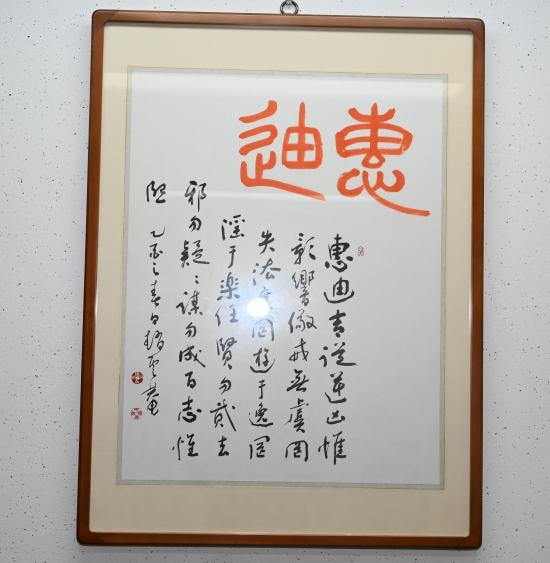 惠迪
惠迪吉從逆凶惟
影響儆戒無虞罔
失法度罔遊于逸罔
淫于楽任賢勿貳去
邪勿疑々謀勿成百志惟
熙 乙酉之春日